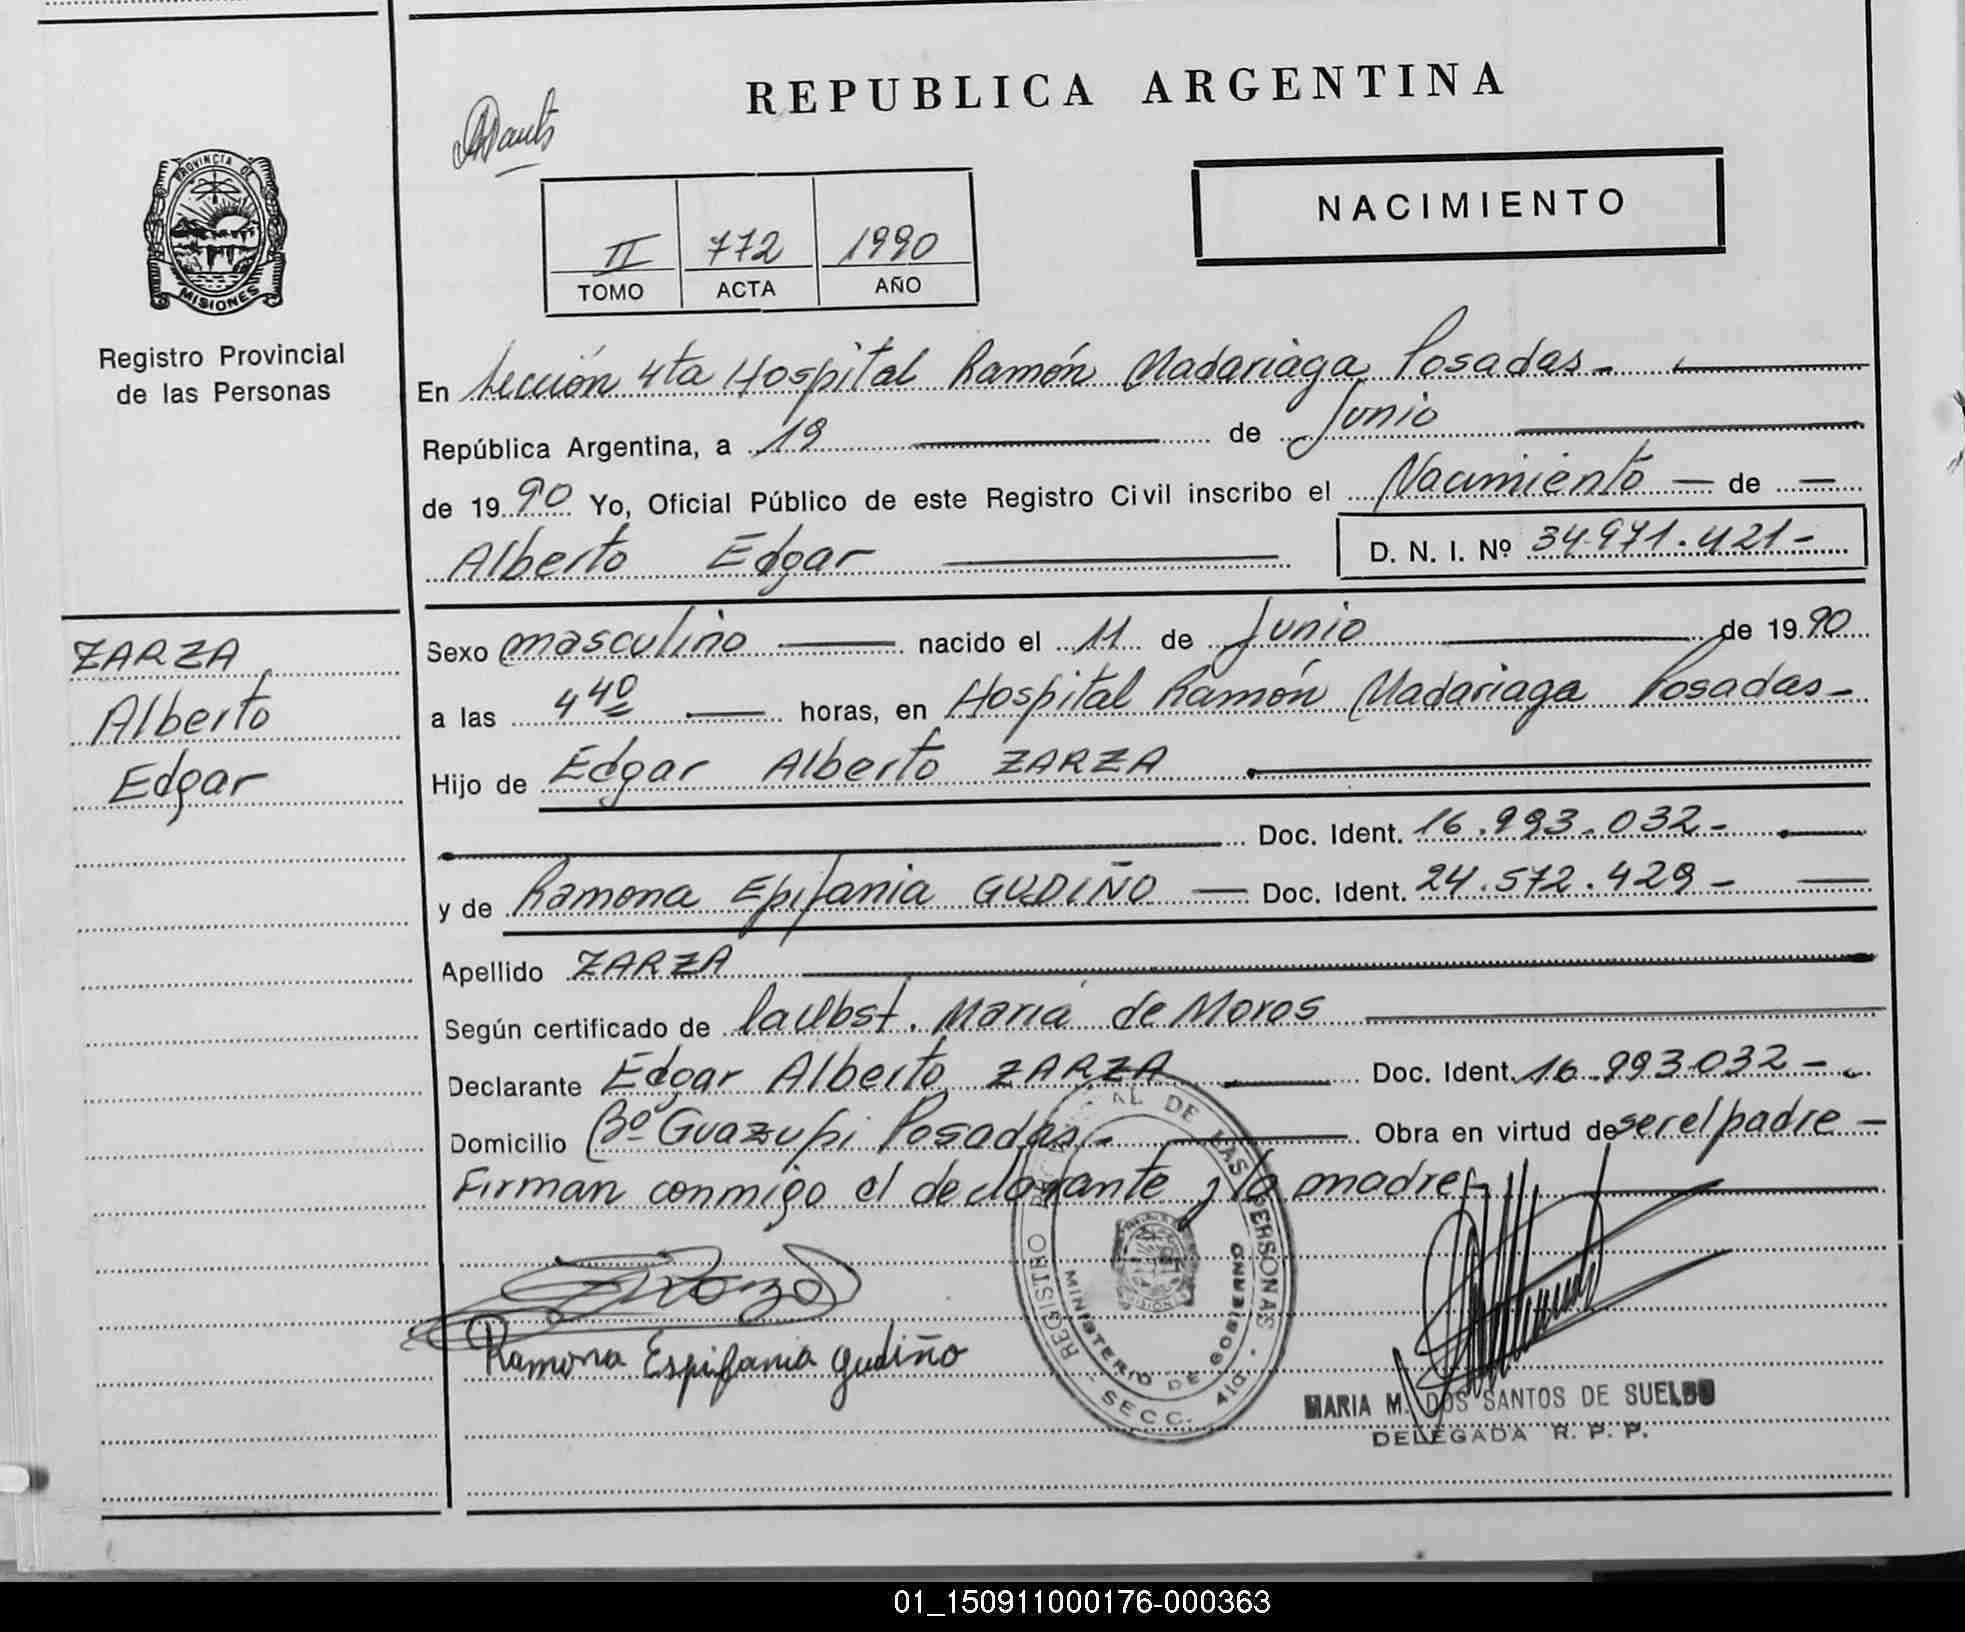 REPUBLICA ARGENTINA
NACIMIENTO
PROVINCIA DE MISIONES
Registro Provincial
de las Personas
II 772 1990
TOMO ACTA AÑO
En Sección 4ta Hospital Ramón Madariaga Posadas.
República Argentina, a 19 de Junio
de 1990 Yo, Oficial Público de este Registro Civil inscribo el Nacimiento de
Alberto Edgar D. N. I. Nº 34.971.421-
ZARZA
Alberto
Edgar
Sexo masculino nacido el 11 de Junio de 1990
a las 4 40 horas, en Hospital Ramón Madariaga Posadas-
Hijo de Edgar Alberto ZARZA
Doc. Ident. 16.993.032-
y de Ramona Epifania GUDIÑO Doc. Ident. 24.572.429-
Apellido ZARZA
Según certificado de la Obst. Maria de Moros
Declarante Edgar Alberto ZARZA Doc. Ident. 16.993.032-
Domicilio Bº Guazupi Posadas- Obra en virtud de ser el padre-
Firman conmigo el declarante y la madre
Ramona Espifania gudiño
REGISTRO PROVINCIAL DE LAS PERSONAS
MINISTERIO DE GOBIERNO
SECC. 4ta.
MARIA M. DOS SANTOS DE SUELDO
DELEGADA R. P. P.
01_150911000176-000363